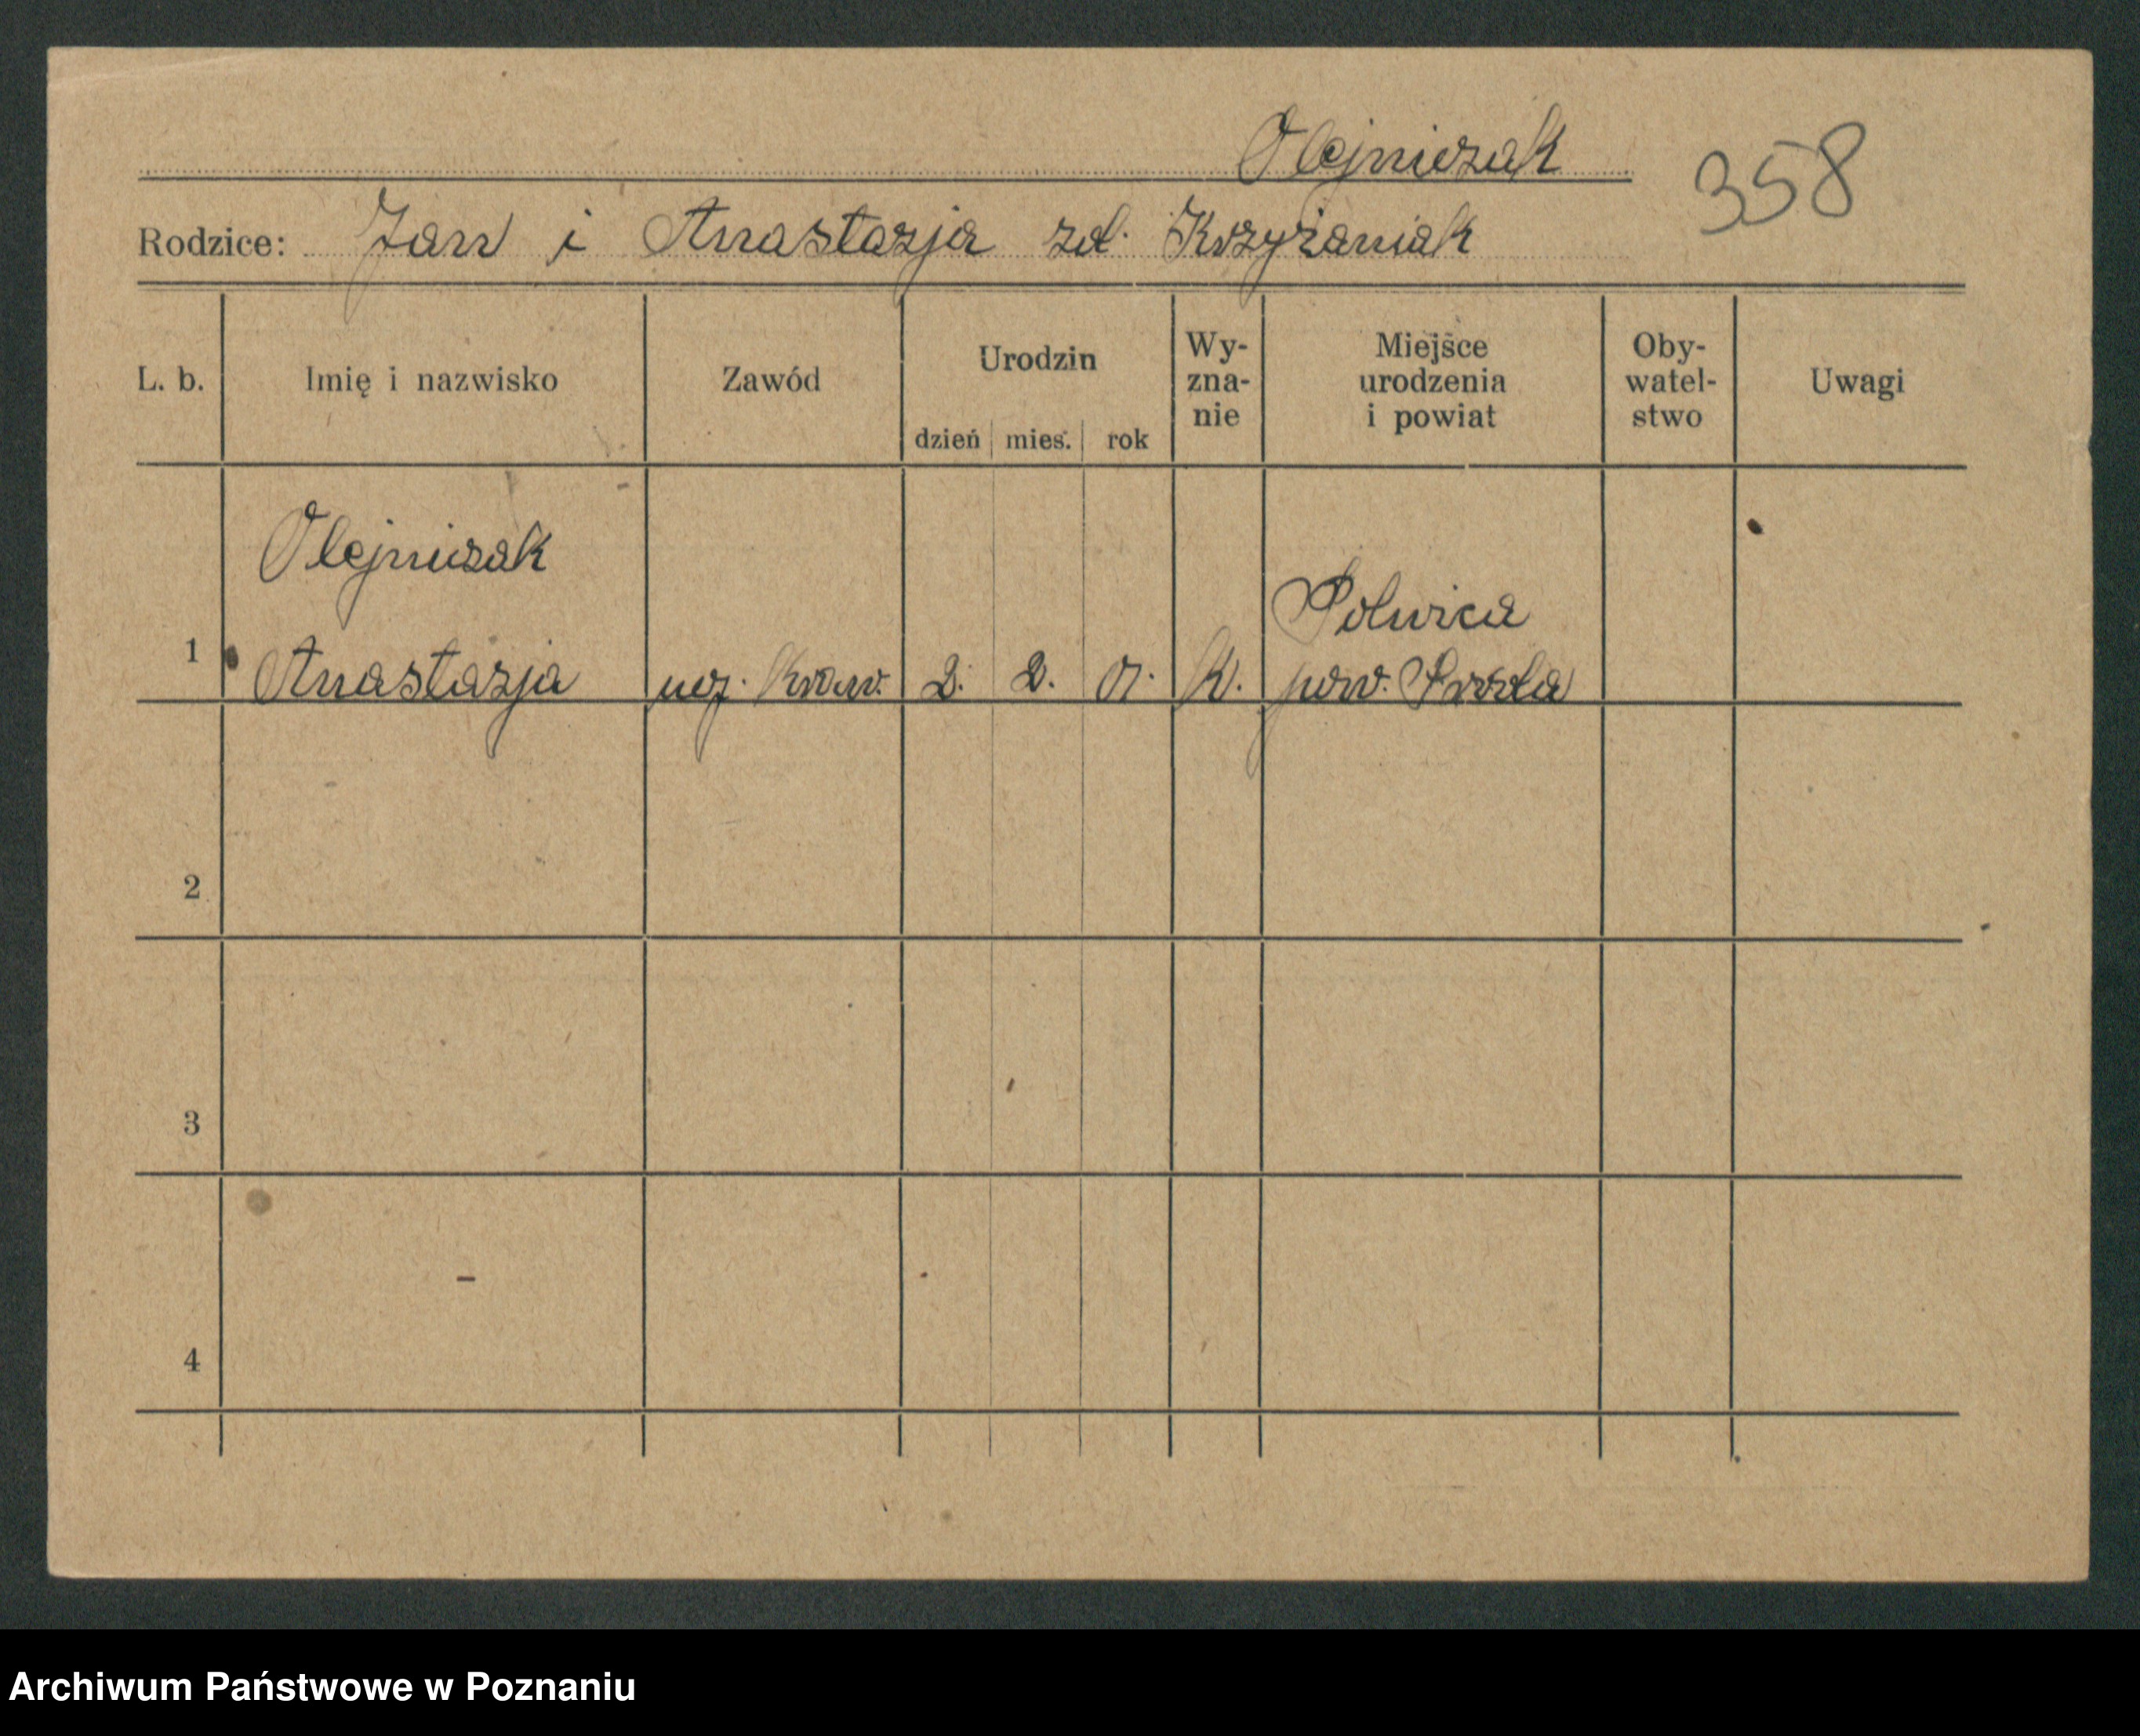 Olejniczak
358
Rodzice: Jan i Anastazja zd. Krzyżaniak
L. b. Imię i nazwisko Zawód Urodzin dzień mies. rok Wy-zna-nie Miejsce urodzenia i powiat Oby-watel-stwo Uwagi
Olejniczak
Połwica
1 Anastazja ucz. kraw. 2. 2. K. pow. Środa
2
3
4
Archiwum Państwowe w Poznaniu